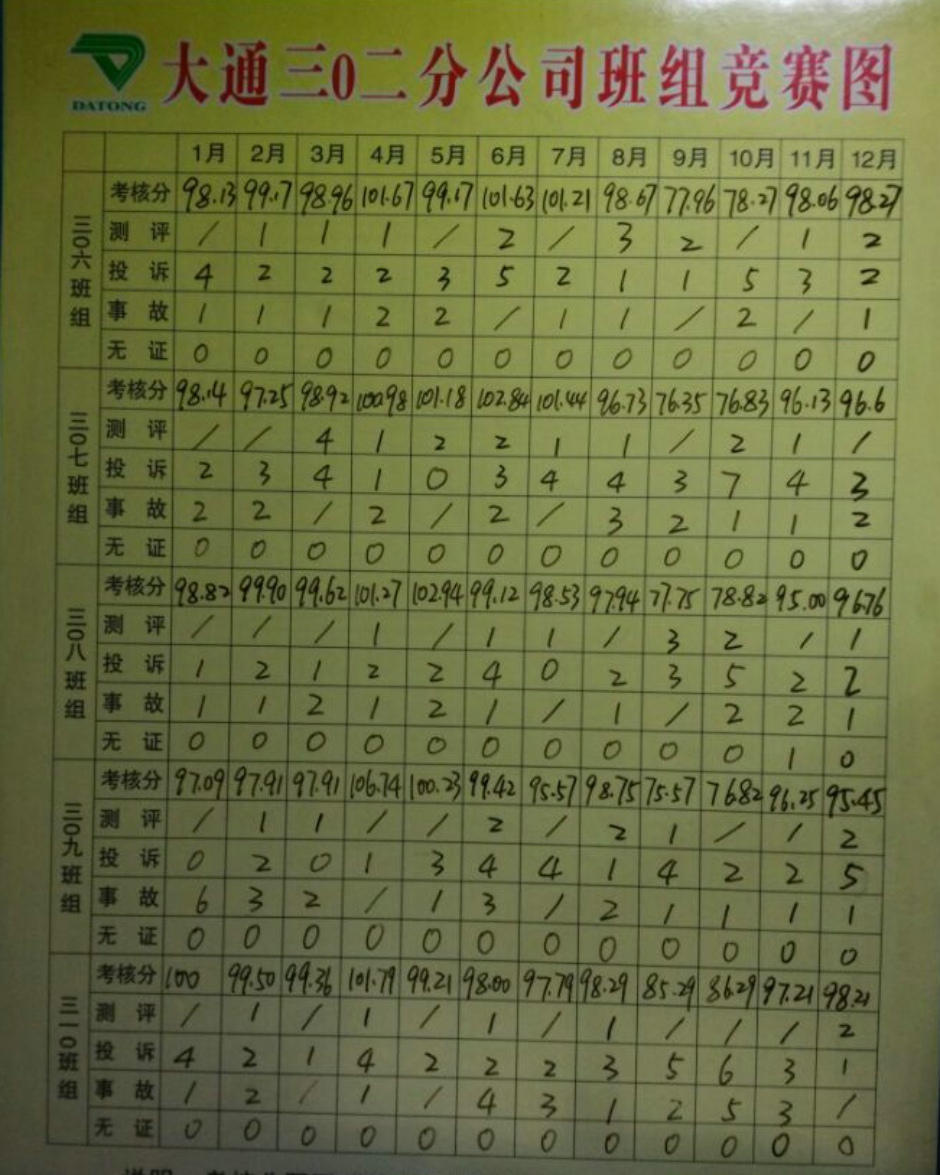 大通三0二分公司班组竞赛图
DATONG
1月 2月 3月 4月 5月 6月 7月 8月 9月 10月 11月 12月
三0六班组
考核分 98.13 99.17 98.96 101.67 99.17 101.63 101.21 98.67 77.96 78.27 98.06 98.27
测评 / 1 1 1 / 2 / 3 2 / 1 2
投诉 4 2 2 2 3 5 2 1 1 5 3 2
事故 1 1 1 2 2 / 1 1 / 2 / 1
无证 0 0 0 0 0 0 0 0 0 0 0 0
三0七班组
考核分 98.14 97.25 98.92 100.98 101.18 102.84 101.44 96.73 76.35 76.83 96.13 96.6
测评 / / 4 1 2 2 1 1 / 2 1 /
投诉 2 3 4 1 0 3 4 4 3 7 4 3
事故 2 2 / 2 / 2 / 3 2 1 1 2
无证 0 0 0 0 0 0 0 0 0 0 0 0
三0八班组
考核分 98.82 99.90 99.62 101.27 102.94 99.12 98.53 97.94 77.75 78.82 95.00 96.76
测评 / / / 1 / 1 1 / 3 2 / 1
投诉 1 2 1 2 2 4 0 2 3 5 2 2
事故 1 1 2 1 2 1 / 1 / 2 2 1
无证 0 0 0 0 0 0 0 0 0 0 1 0
三0九班组
考核分 97.09 97.91 97.91 106.74 100.23 99.42 95.57 98.75 75.57 76.82 96.25 95.45
测评 / 1 1 / / 2 / 2 1 / / 2
投诉 0 2 0 1 3 4 4 1 4 2 2 5
事故 6 3 2 / 1 3 / 2 1 1 1 1
无证 0 0 0 0 0 0 0 0 0 0 0 0
三一0班组
考核分 100 99.50 99.36 101.79 99.21 98.00 97.79 98.29 85.29 86.29 97.21 98.21
测评 / 1 / 1 / 1 / 1 / / / 2
投诉 4 2 1 4 2 2 2 3 5 6 3 1
事故 1 2 / 1 / 4 3 1 2 5 3 /
无证 0 0 0 0 0 0 0 0 0 0 0 0